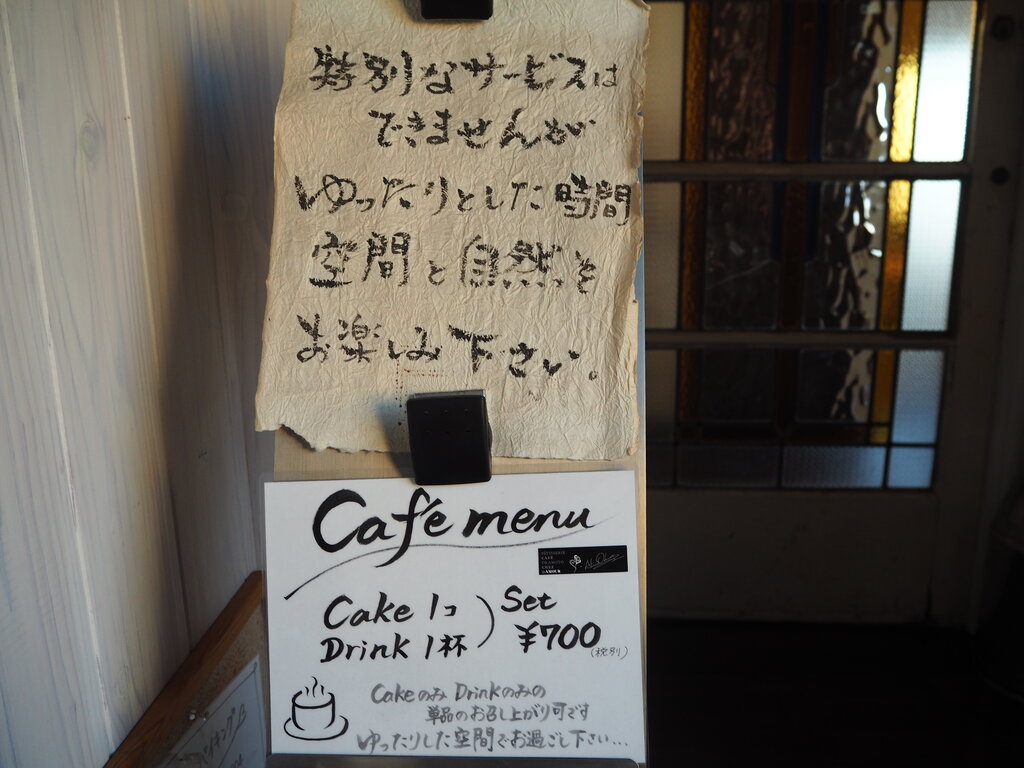 特別なサービスは
できませんが
ゆったりとした時間
空間と自然を
お楽しみ下さい。
Café menu
PATISSERIE
CAFE
OKAMOTO
CHEF
D'AMOUR
Cake 1コ
Drink 1杯
Set
¥700
(税別)
Cakeのみ Drinkのみの
単品のお召し上がり可です
ゆったりした空間でお過ごし下さい...